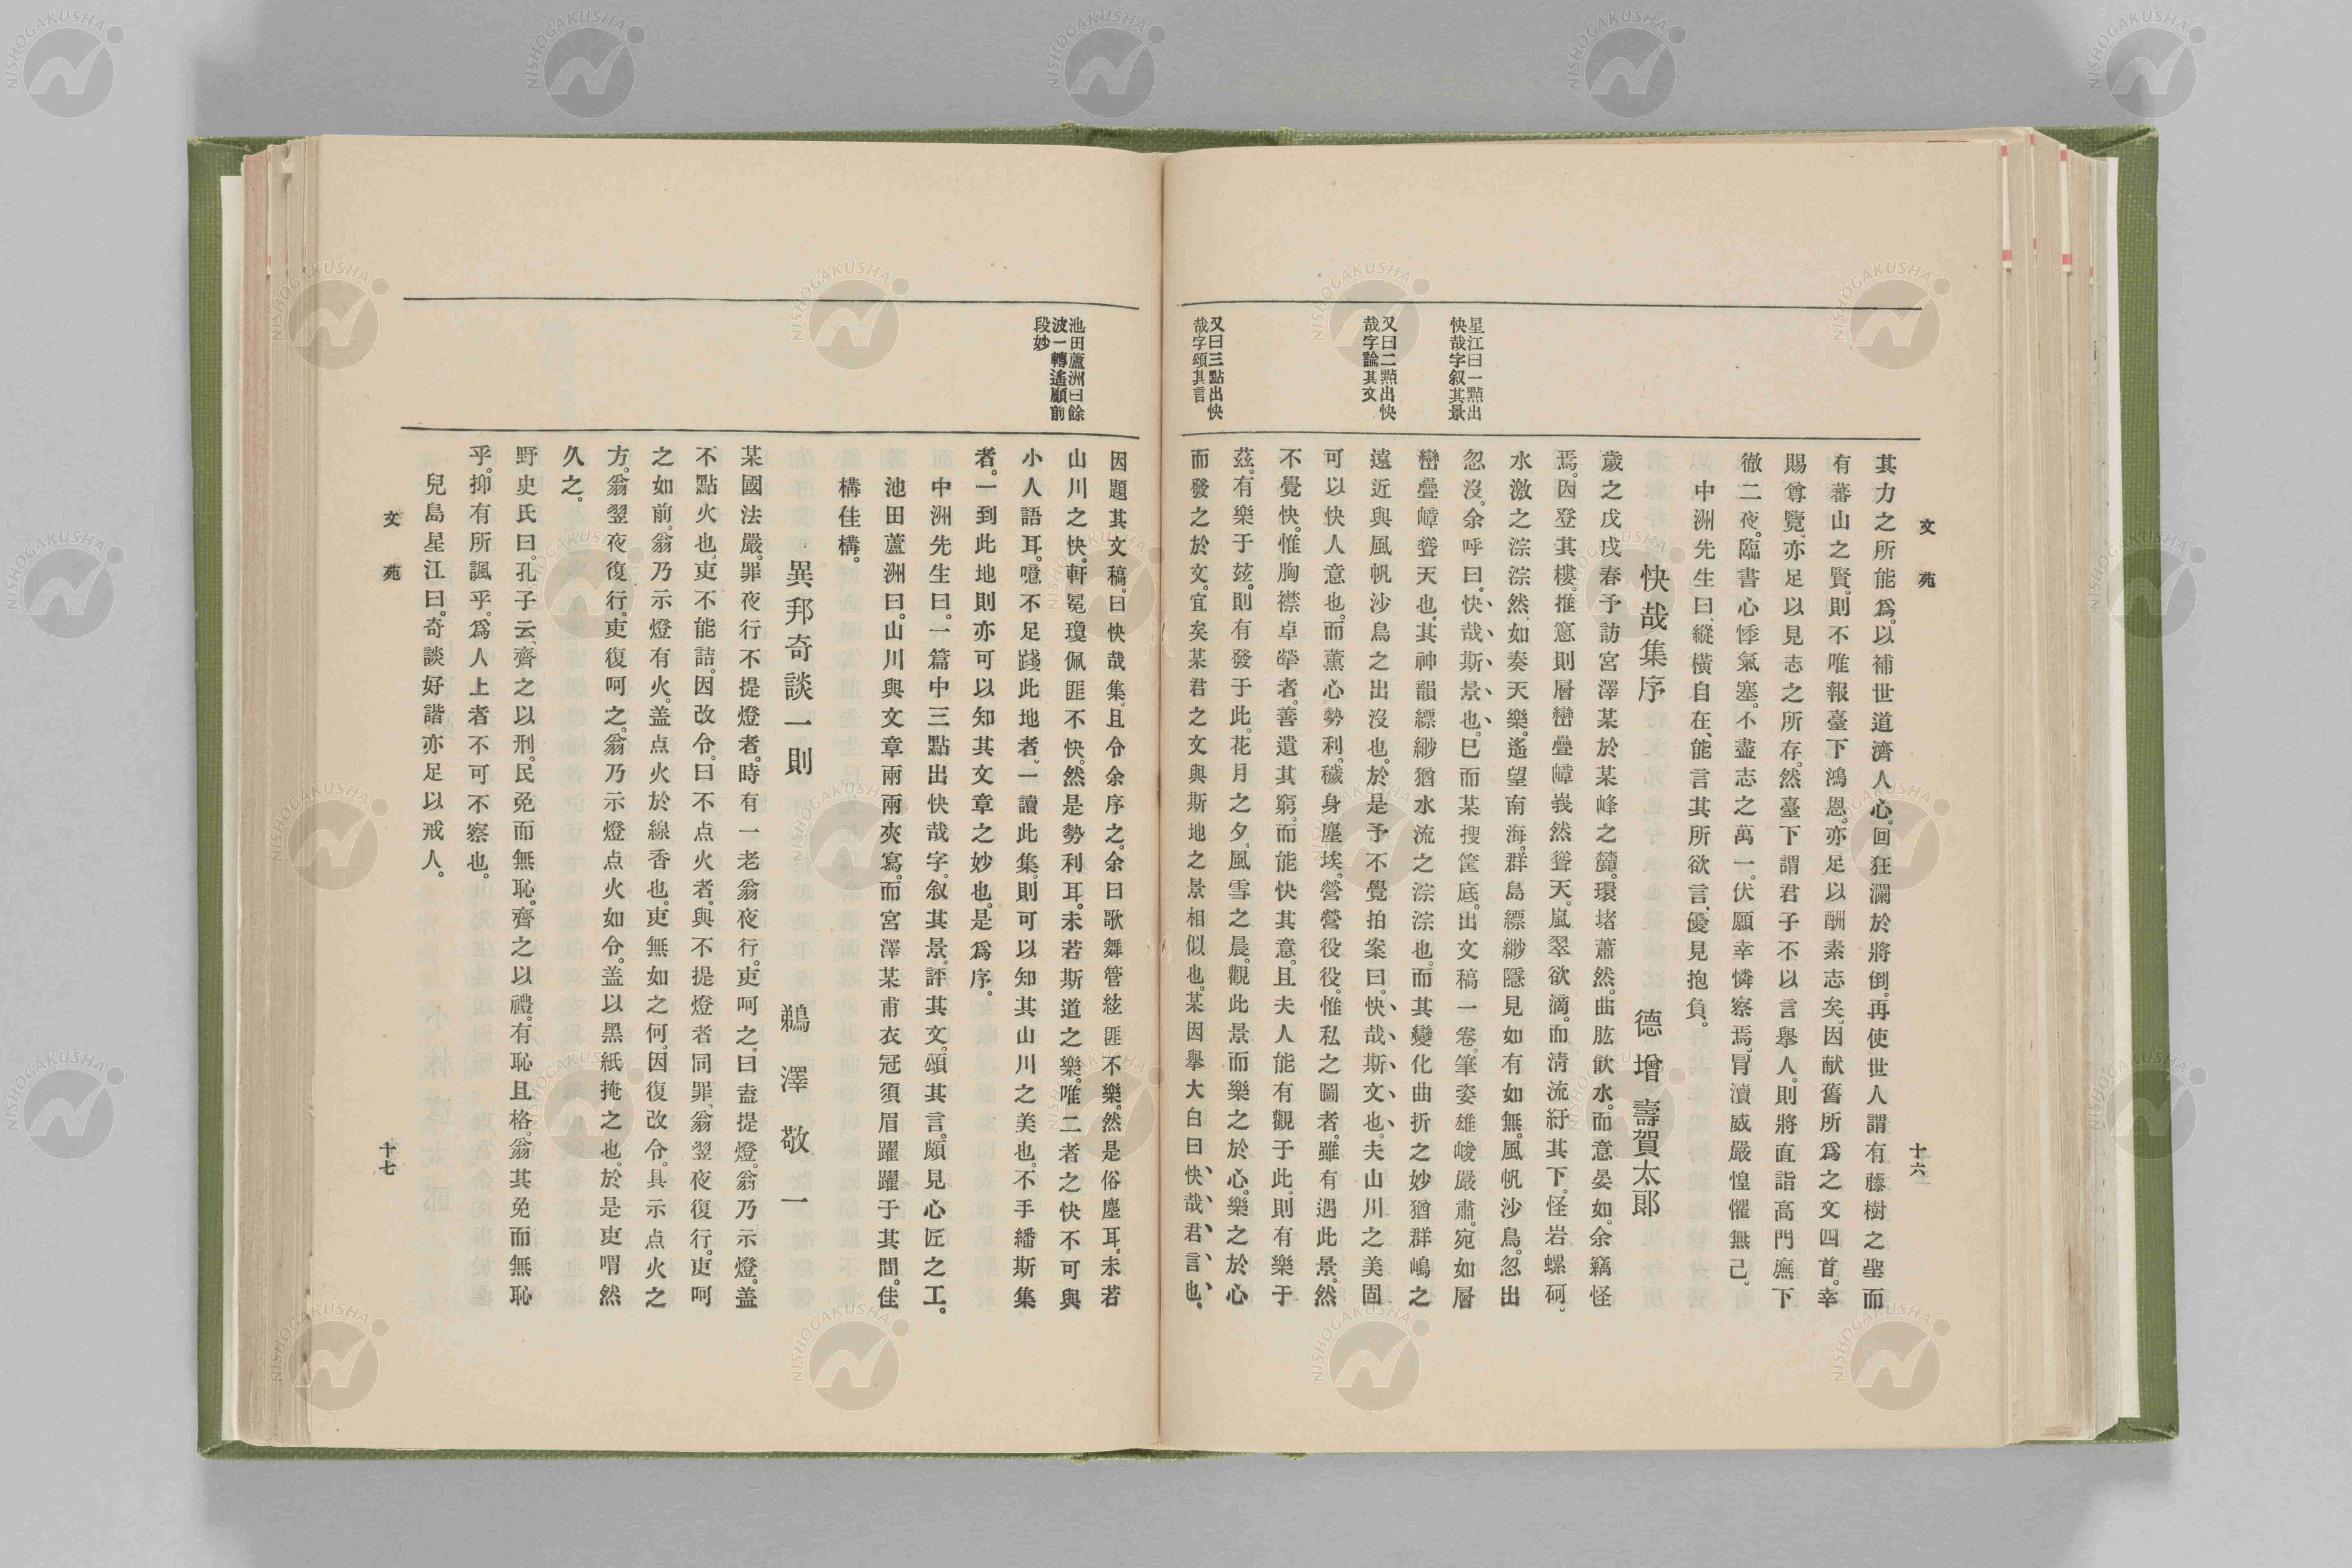 文苑
十六
其力之所能爲。以補世道濟人心。回狂瀾於將倒。再使世人謂有藤樹之聖而
有蕃山之賢。則不唯報臺下鴻恩。亦足以酬素志矣。因献舊所爲之文四首。幸
賜尊覽。亦足以見志之所存。然臺下謂君子不以言擧人。則將直詣高門廡下
徹二夜。臨書心悸氣塞。不盡志之萬一。伏願幸憐察焉。冐瀆威嚴惶懼無已。
中洲先生曰、縱橫自在、能言其所欲言、優見抱負。
快哉集序
德增壽賀太郞
歲之戊戌春予訪宮澤某於某峰之麓。環堵蕭然。曲肱飮水。而意晏如。余竊怪
焉。因登其樓。推窻則層巒疊嶂峩然聳天。嵐翠欲滴。而淸流紆其下。怪岩螺砢。
水激之淙淙然、如奏天樂。遙望南海。群島縹緲隱見如有如無。風帆沙鳥。忽出
忽沒。余呼曰。快哉斯景也。已而某搜筐底。出文稿一卷。筆姿雄峻嚴肅。宛如層
巒疊嶂聳天也。其神韻縹緲猶水流之淙淙也。而其變化曲折之妙猶群嶋之
遠近與風帆沙鳥之出沒也。於是予不覺拍案曰。快哉斯文也。夫山川之美固
可以快人意也。而薰心勢利。穢身塵埃。營營役役。惟私之圖者。雖有遇此景。然
不覺快。惟胸襟卓犖者。善遺其窮。而能快其意。且夫人能有觀于此。則有樂于
茲。有樂于玆。則有發于此。花月之夕。風雪之晨。觀此景而樂之於心。樂之於心
而發之於文。宜矣某君之文與斯地之景相似也。某因擧大白曰快哉君言也、
星江曰一點出
快哉字叙其景
又曰二點出快
哉字論其文
又曰三點出快
哉字頌其言
因題其文稿。曰快哉集。且令余序之。余曰歌舞管絃匪不樂。然是俗塵耳。未若
山川之快。軒冕瓊佩匪不快。然是勢利耳。未若斯道之樂。唯二者之快不可與
小人語耳。噫不足踐此地者。一讀此集。則可以知其山川之美也。不手繙斯集
者。一到此地則亦可以知其文章之妙也。是爲序。
中洲先生曰。一篇中三點出快哉字。叙其景。評其文。頌其言。頗見心匠之工。
池田蘆洲曰。山川與文章兩兩夾寫。而宮澤某甫衣冠須眉躍躍于其間。佳
構佳構。
池田蘆洲曰餘
波一轉遙顧前
段妙
異邦奇談一則
鵜澤敬一
某國法嚴。罪夜行不提燈者。時有一老翁夜行。吏呵之。曰盍提燈。翁乃示燈。盖
不點火也。吏不能詰。因改令。曰不点火者。與不提燈者同罪、翁翌夜復行。吏呵
之如前。翁乃示燈有火。盖点火於線香也。吏無如之何。因復改令。具示点火之
方。翁翌夜復行。吏復呵之。翁乃示燈点火如令。盖以黑紙掩之也。於是吏喟然
久之。
野史氏曰。孔子云、齊之以刑。民免而無恥。齊之以禮。有恥且格。翁其免而無恥
乎。抑有所諷乎。爲人上者不可不察也。
兒島星江曰。奇談好諧亦足以戒人。
文苑
十七
NISHOGAKUSHA